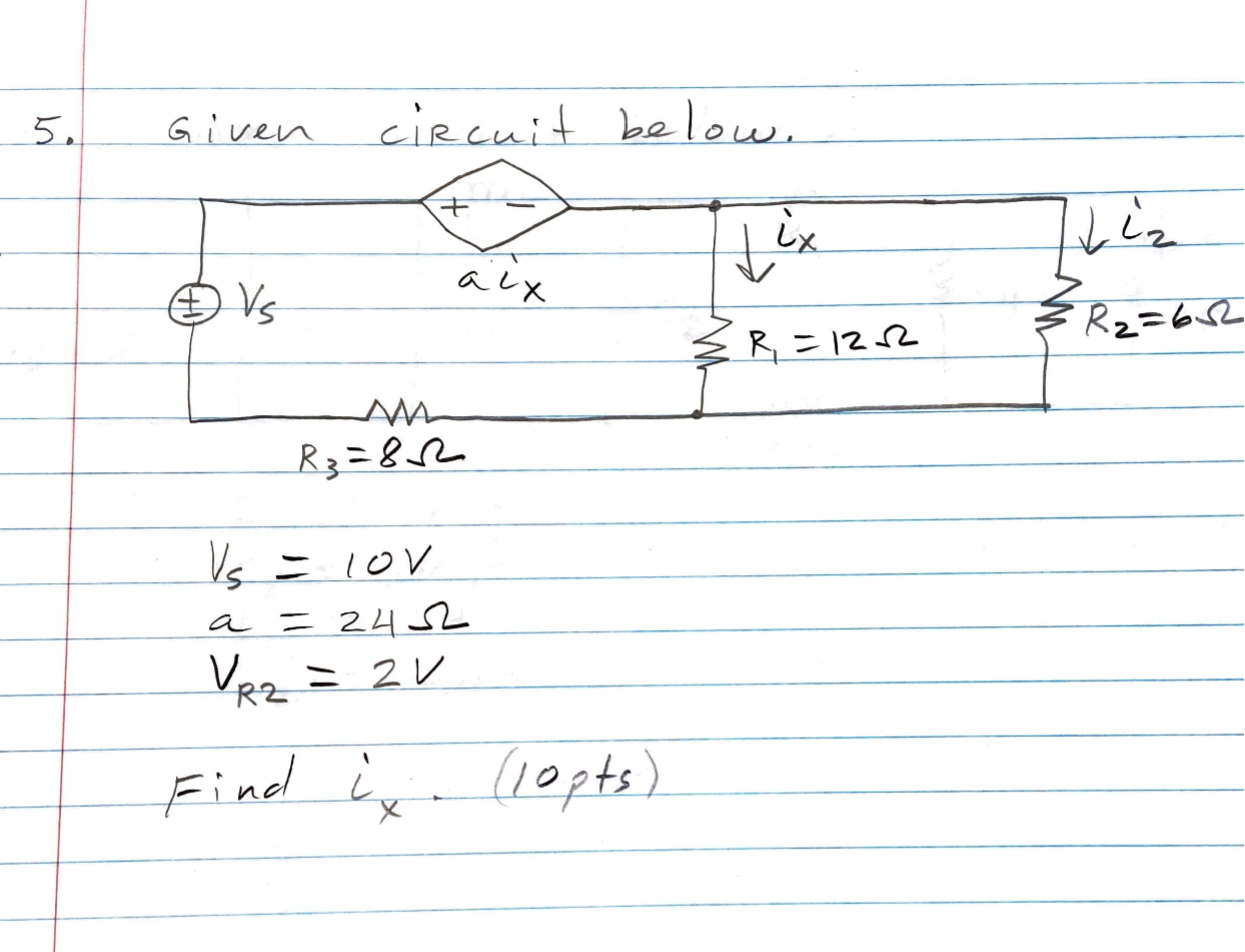 5. Given circuit below.
+ -
ix
i2
aix
± Vs
R1 = 12 Ω
R2 = 6 Ω
R3 = 8 Ω
Vs = 10V
a = 24 Ω
VR2 = 2V
Find ix. (10pts)